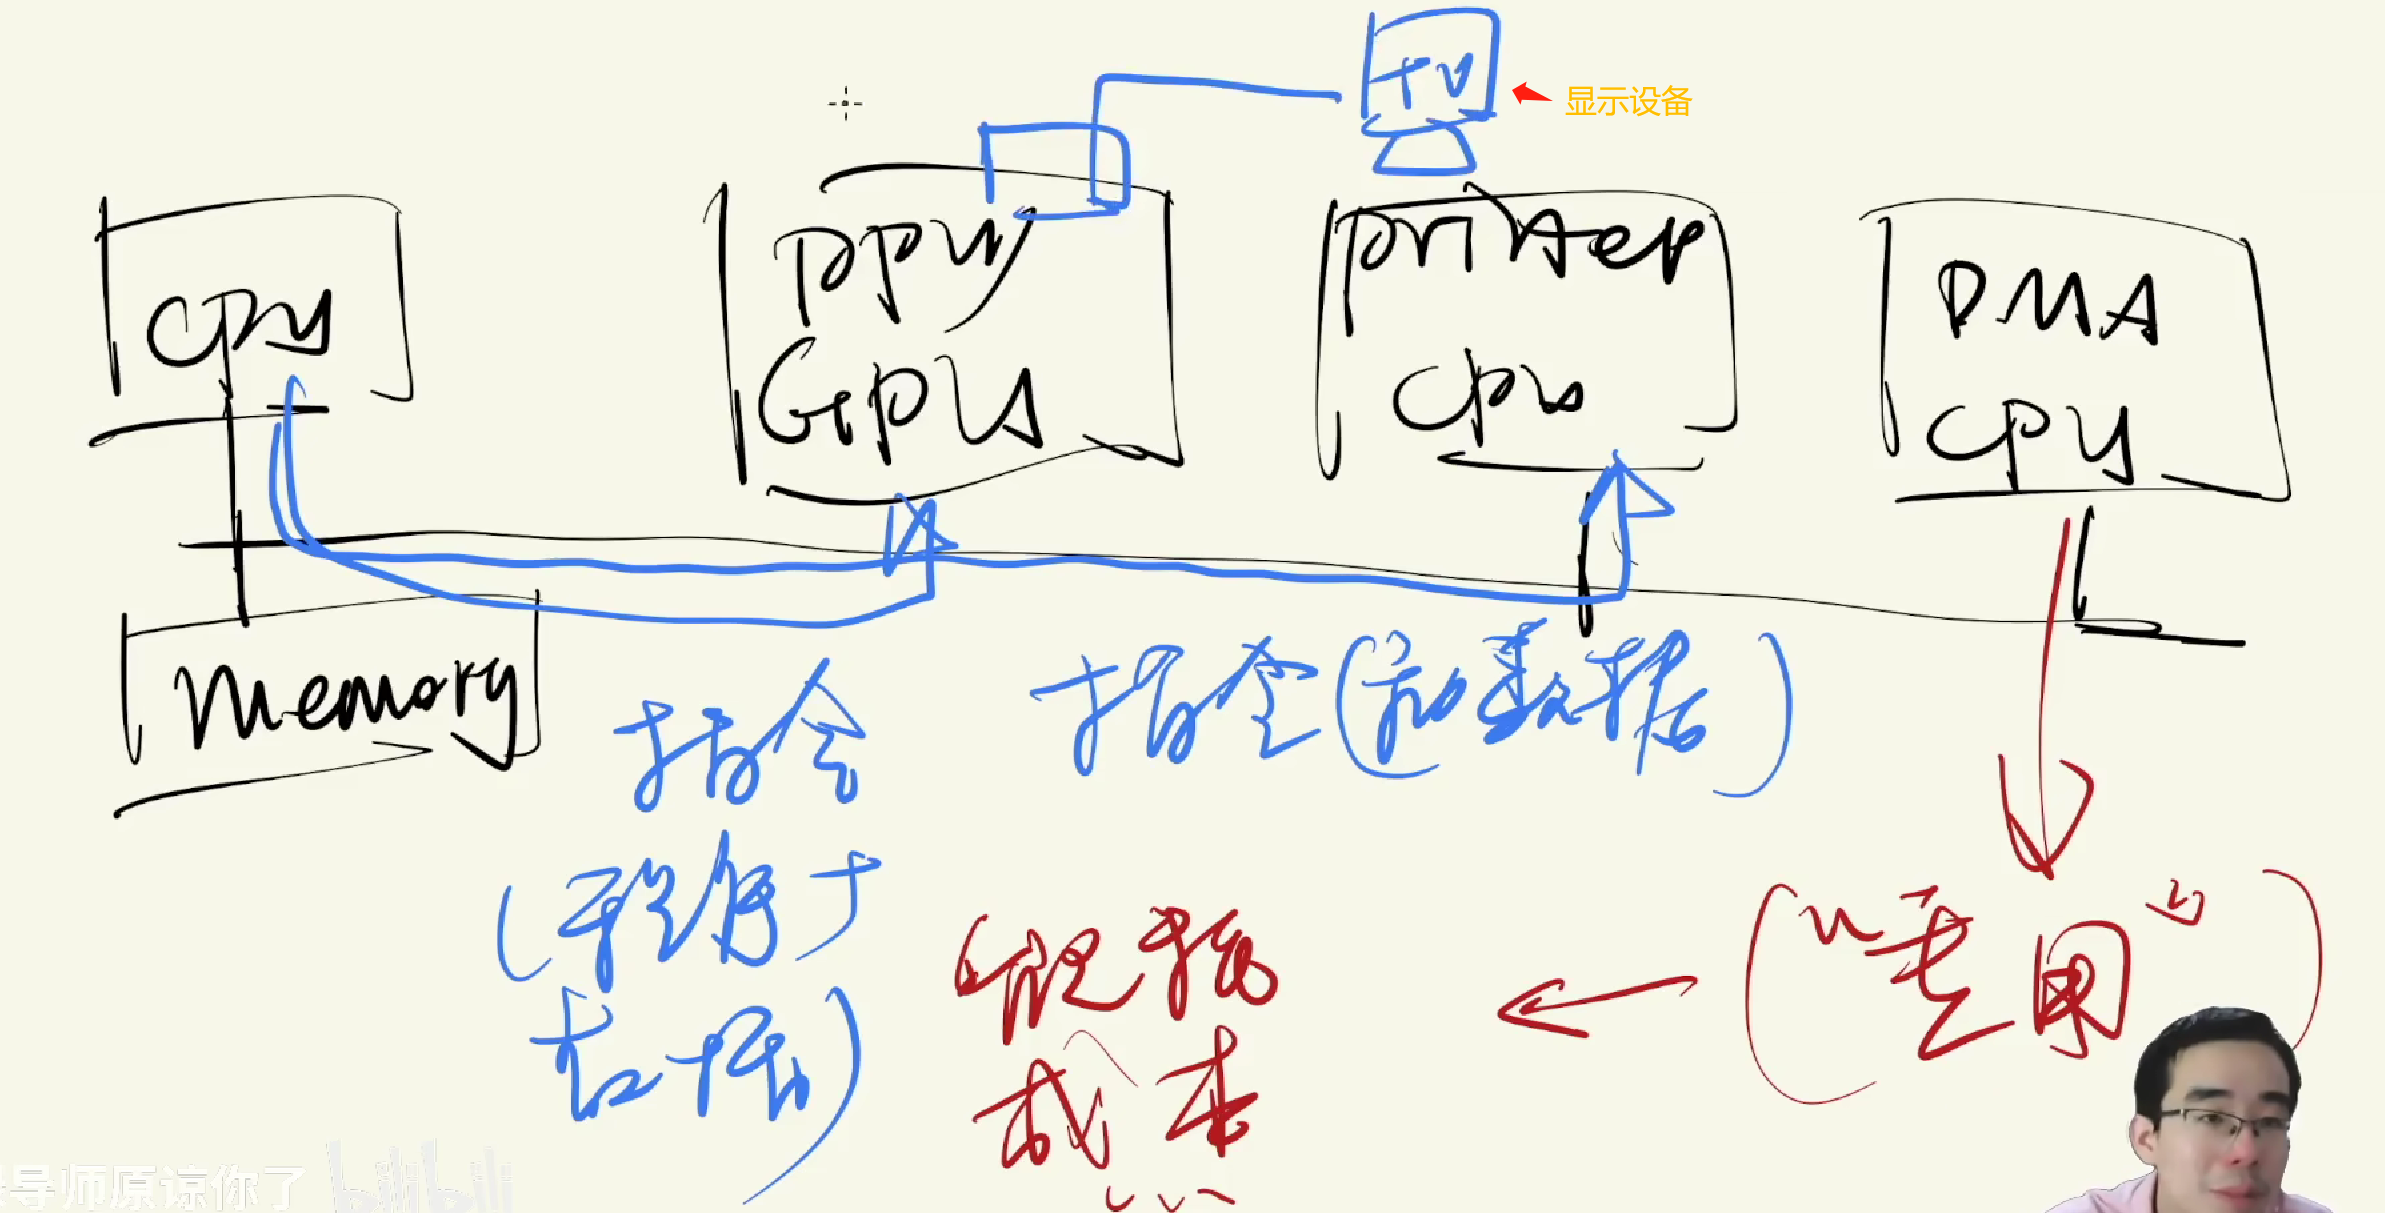 TV
显示设备
CPU
PPU/
GPU
printer
CPU
DMA
CPU
memory
指令
指令(和数据)
(
)
"专用"
能耗
成本
...
导师原谅你了
bilibili